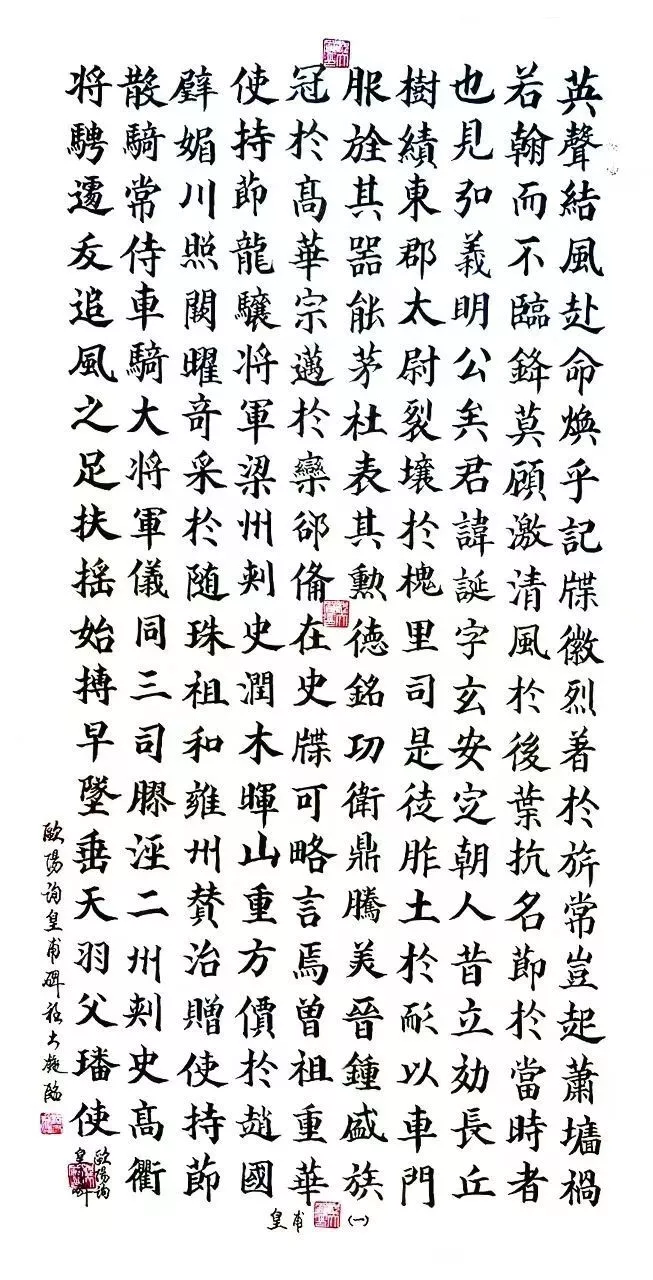 英聲結風赴命煥乎記牒徽烈著於旂常豈起蕭墻禍
若翰而不臨鋒莫顧激清風於後葉抗名節於當時者
也見弘義明公矣君諱誕字玄安定朝人昔立効長丘
樹績東郡太尉裂壤於槐里司是徒胙土於耏以車門
服旌其器能茅社表其勳德銘功衛鼎騰美晉鍾盛族
冠於高華宗邁於欒郤俻在史牒可略言焉曾祖重華
使持節龍驤将軍梁州刺史潤木暉山重方價於趙國
璧媚川照闕曜竒采於随珠祖和雍州贊治贈使持節
散騎常侍車騎大将軍儀同三司膠涇二州刺史高衢
将騁遽夭追風之足扶摇始搏早墜垂天羽父璠使
歐陽詢皇甫碑
臨
歐陽詢
皇甫碑
皇甫
(一)